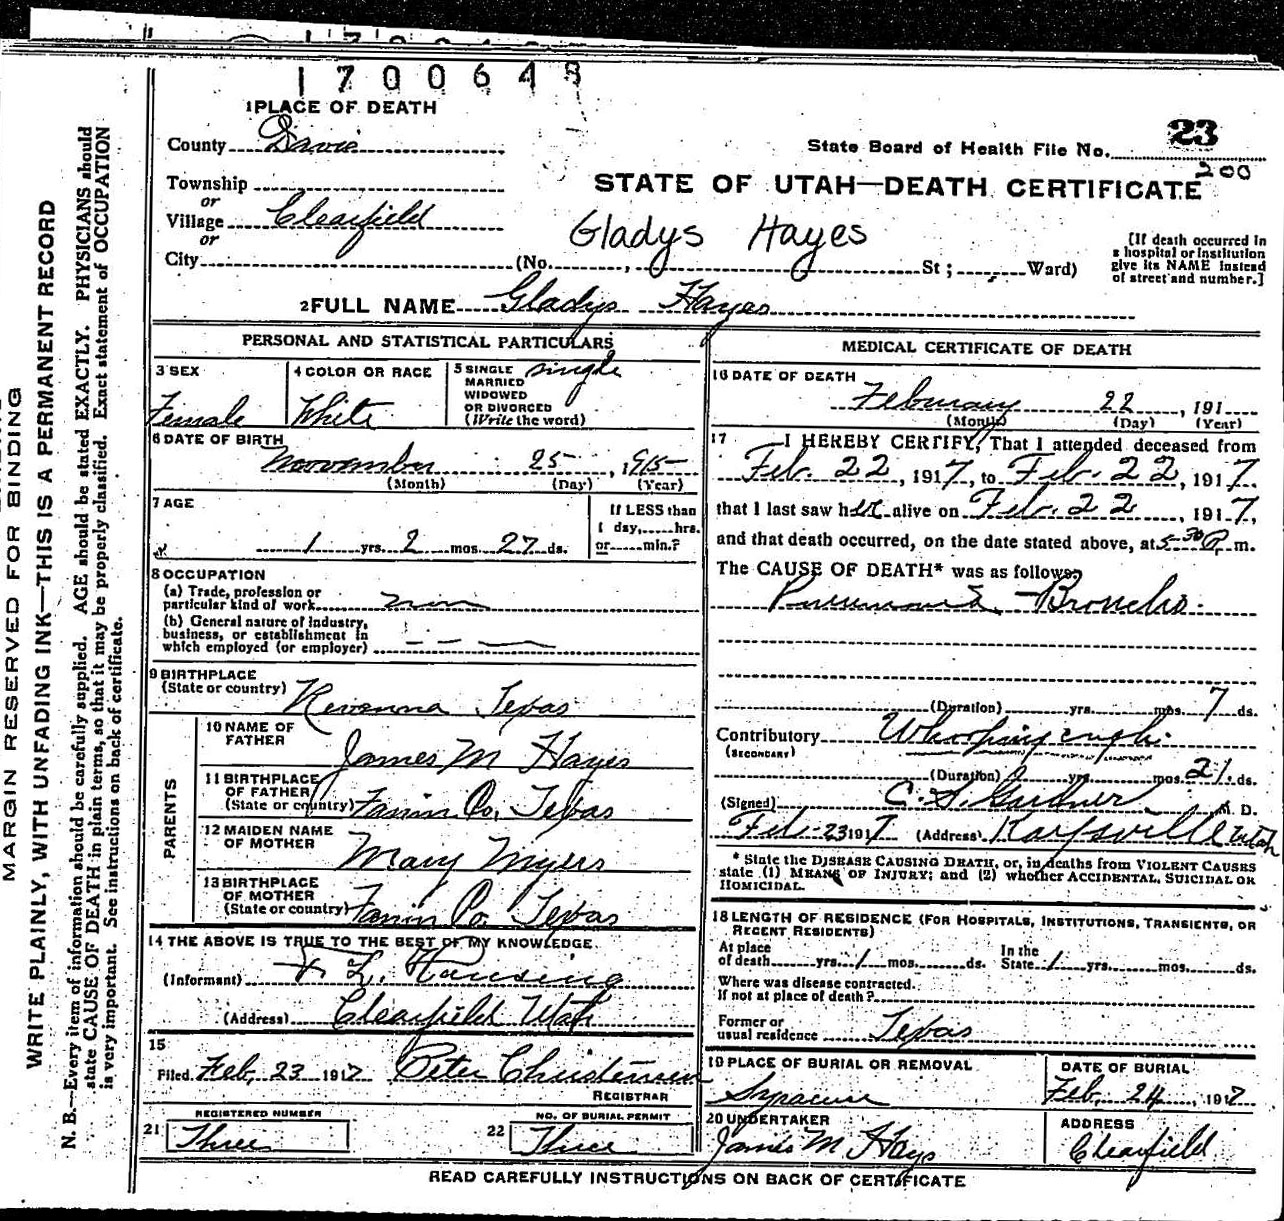 1700648
1 PLACE OF DEATH
County Davis
23
State Board of Health File No.
200
Township
or
Village Clearfield
or
City (No. , St; Ward)
STATE OF UTAH—DEATH CERTIFICATE
Gladys Hayes
[If death occurred in
a hospital or institution
give its NAME instead
of street and number.]
2 FULL NAME Gladys Hayes
PERSONAL AND STATISTICAL PARTICULARS
3 SEX
Female
4 COLOR OR RACE
White
5 SINGLE
MARRIED
WIDOWED
OR DIVORCED
(Write the word)
single
6 DATE OF BIRTH
November 25, 1915
(Month) (Day) (Year)
7 AGE
1 yrs. 2 mos. 27 ds.
If LESS than
1 day, hrs.
or min.?
8 OCCUPATION
(a) Trade, profession or
particular kind of work
(b) General nature of industry,
business, or establishment in
which employed (or employer)
9 BIRTHPLACE
(State or country) Revenna Texas
PARENTS
10 NAME OF
FATHER
James M Hayes
11 BIRTHPLACE
OF FATHER
(State or country) Fanin Co. Texas
12 MAIDEN NAME
OF MOTHER
Mary Myers
13 BIRTHPLACE
OF MOTHER
(State or country) Fanin Co. Texas
14 THE ABOVE IS TRUE TO THE BEST OF MY KNOWLEDGE
(Informant) L.
(Address) Clearfield Utah
15
Filed Feb, 23 1917 Peter Christensen
REGISTRAR
REGISTERED NUMBER
21 Three
NO. OF BURIAL PERMIT
22 Three
MEDICAL CERTIFICATE OF DEATH
16 DATE OF DEATH
February 22, 191
(Month) (Day) (Year)
17 I HEREBY CERTIFY, That I attended deceased from
Feb. 22, 1917, to Feb. 22, 1917.
that I last saw her alive on Feb. 22, 1917,
and that death occurred, on the date stated above, at 5-30 P. m.
The CAUSE OF DEATH* was as follows:
Pneumonia - Broncho.
(Duration) yrs. mos. 7 ds.
Contributory Whooping cough.
(SECONDARY)
(Duration) yrs. mos. 21 ds.
(Signed) C. S. Gardner M. D.
Feb. 23 1917 (Address) Kaysville Utah
* State the DISEASE CAUSING DEATH, or, in deaths from VIOLENT CAUSES
state (1) MEANS OF INJURY; and (2) whether ACCIDENTAL, SUICIDAL OR
HOMICIDAL.
18 LENGTH OF RESIDENCE (FOR HOSPITALS, INSTITUTIONS, TRANSIENTS, OR
RECENT RESIDENTS)
At place
of death yrs. 1 mos. ds.
In the
State 1 yrs. mos. ds.
Where was disease contracted.
If not at place of death?
Former or
usual residence Texas
19 PLACE OF BURIAL OR REMOVAL
Syracuse
DATE OF BURIAL
Feb. 24, 1917
20 UNDERTAKER
James M Hays
ADDRESS
Clearfield
READ CAREFULLY INSTRUCTIONS ON BACK OF CERTIFICATE
MARGIN RESERVED FOR BINDING
WRITE PLAINLY, WITH UNFADING INK—THIS IS A PERMANENT RECORD
N. B.—Every item of information should be carefully supplied. AGE should be stated EXACTLY. PHYSICIANS should
state CAUSE OF DEATH in plain terms, so that it may be properly classified. Exact statement of OCCUPATION
is very important. See instructions on back of certificate.